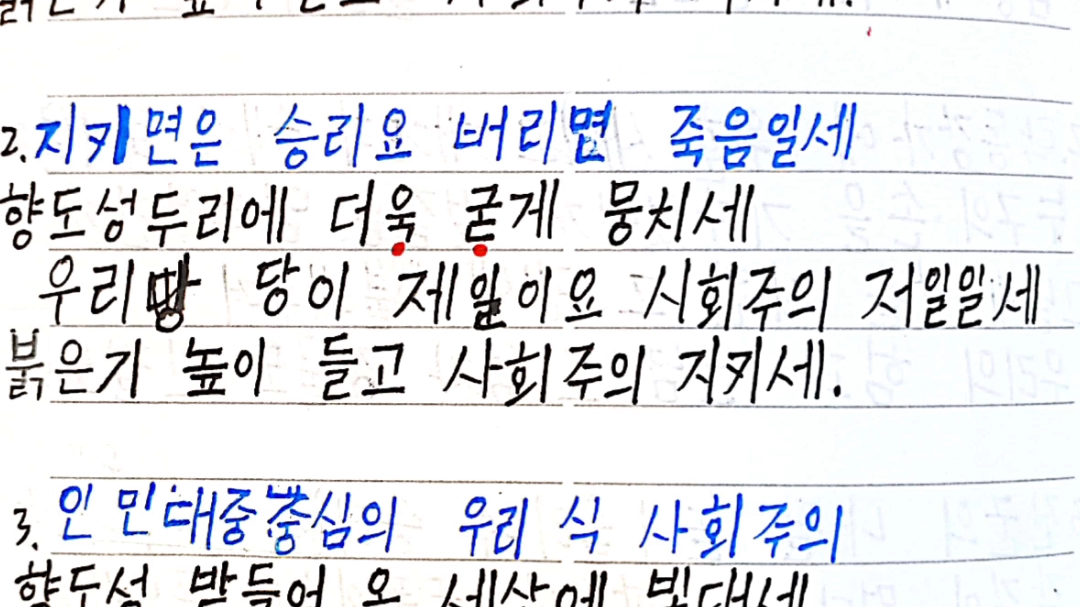 2. 지키면은 승리요 버리면 죽음일세
향도성두리에 더욱 굳게 뭉치세
우리땅 당이 제일이요 사회주의 저일일세
붉은기 높이 들고 사회주의 지키세.
3. 인민대중중심의 우리 식 사회주의
향도성 받들어 온 세상에 빛내세